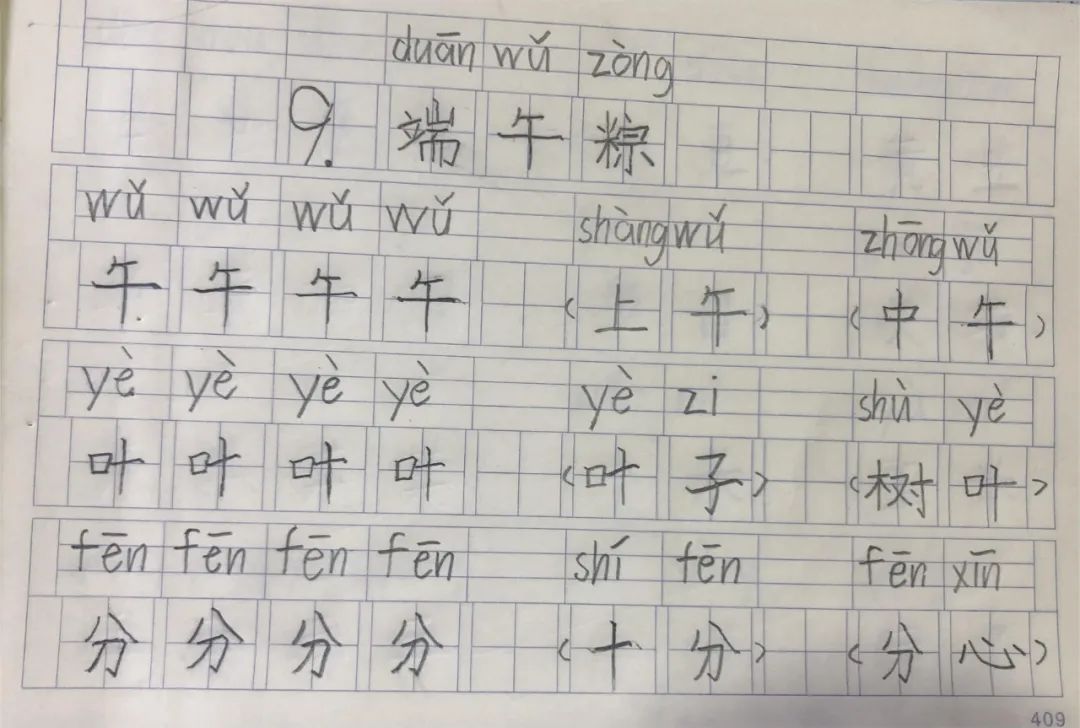 duān wǔ zòng
9. 端午粽
wǔ wǔ wǔ wǔ shàng wǔ zhōng wǔ
午 午 午 午 (上午) (中午)
yè yè yè yè yè zi shù yè
叶 叶 叶 叶 (叶子) (树叶)
fēn fēn fēn fēn shí fēn fēn xīn
分 分 分 分 (十分) (分心)
409